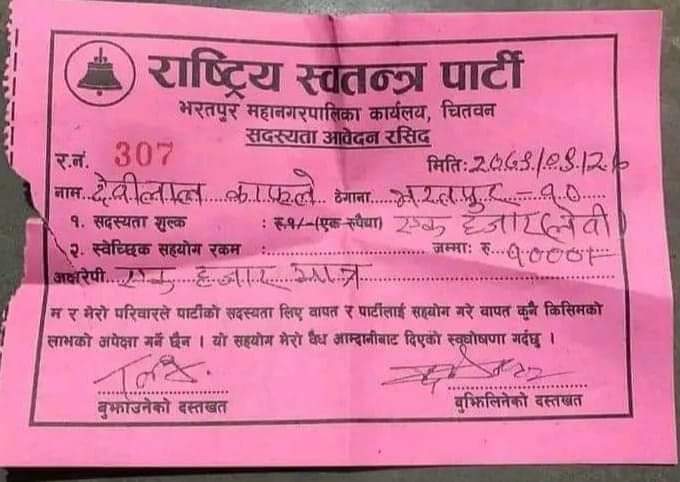 राष्ट्रिय स्वतन्त्र पार्टी
भरतपुर महानगरपालिका कार्यलय, चितवन
सदस्यता आवेदन रसिद
र.नं. 307
मिति:
नाम. देवीलाल काफ्ले ठेगाना भरतपुर-१०
१. सदस्यता शुल्क : रु.१/-(एक रुपैया) एक हजार (लेवी)
२. स्वेच्छिक सहयोग रकम : जम्मा: रु. १०००/-
अक्षरेपी एक हजार मात्र
म र मेरो परिवारले पार्टीको सदस्यता लिए वापत र पार्टीलाई सहयोग गरे वापत कुनै किसिमको
लाभको अपेक्षा गर्ने छैन । यो सहयोग मेरो वैध आम्दानीबाट दिएको स्वघोषणा गर्दछु ।
बुझाउनेको दस्तखत
बुझिलिनेको दस्तखत